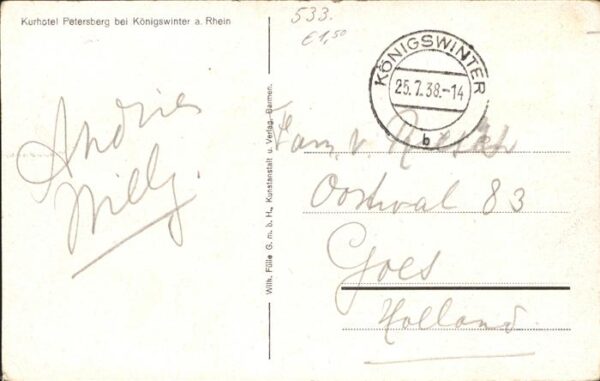 Kurhotel Petersberg bei Königswinter a. Rhein
533.
€1,50
KÖNIGSWINTER
25.7.38.-14
b
Andries
Willy.
Wilh. Fülle G. m. b. H., Kunstanstalt u. Verlag, Barmen.
Fam. v.
Oostwal 83
Goes
Holland.